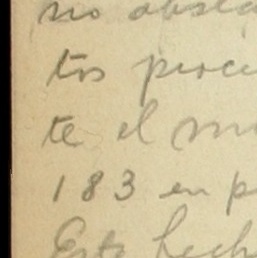 no obsea
tos proce
te el mo
183 en p
Este hech